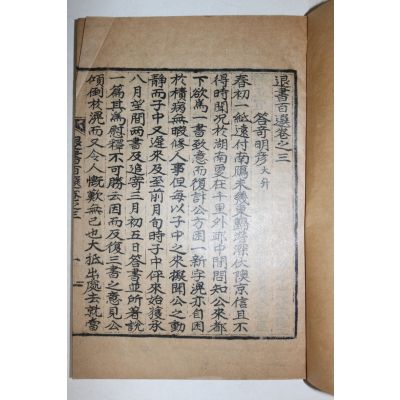 退書百選卷之三
答奇明彦 大升
春初一紙遠付南鴈未幾東歸潛深伏隩京信且不
得時聞況於湖南夐在千里外耶中間問知公來都
下欲爲一書致意而復訝公方困一新字滉亦自困
於積病無暇修人事但每以子中之來擬聞公之動
靜而子中又遲來及至前月旬時子中伻來始獲承
八月望間兩書及追寄三月初五日答書並所著說
一篇其爲慰釋不可勝去因而反復三書之意見公
傾倒於滉而又令人慨歎無已也大抵出處去就當
退書百選卷之三